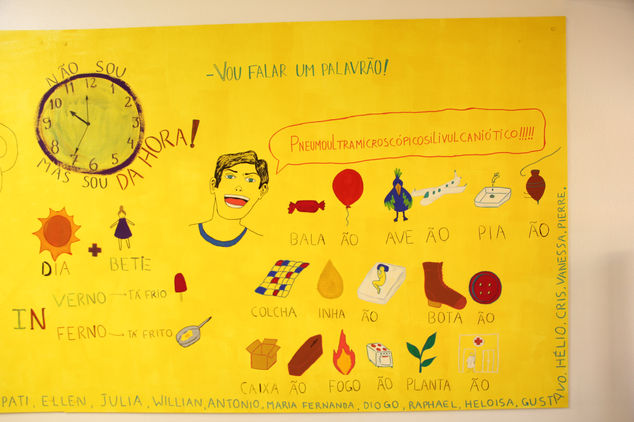 NÃO SOU
10 11 12 1 2 3 4 5 6 7 8 9
MAS SOU DA HORA!
-VOU FALAR UM PALAVRÃO!
PNEUMOULTRAMICROSCÓPICOSILIVULCANIÓTICO!!!!!
BALA ÃO AVE ÃO PIA ÃO
DIA + BETE
COLCHA INHA ÃO BOTA ÃO
IN
VERNO → TÁ FRIO
FERNO → TÁ FRITO
CAIXA ÃO FOGO ÃO PLANTA ÃO
PATI, ELLEN, JULIA, WILLIAN, ANTONIO, MARIA FERNANDA, DIOGO, RAPHAEL, HELOISA, GUSTAVO, HÉLIO, CRIS, VANESSA, PIERRE,